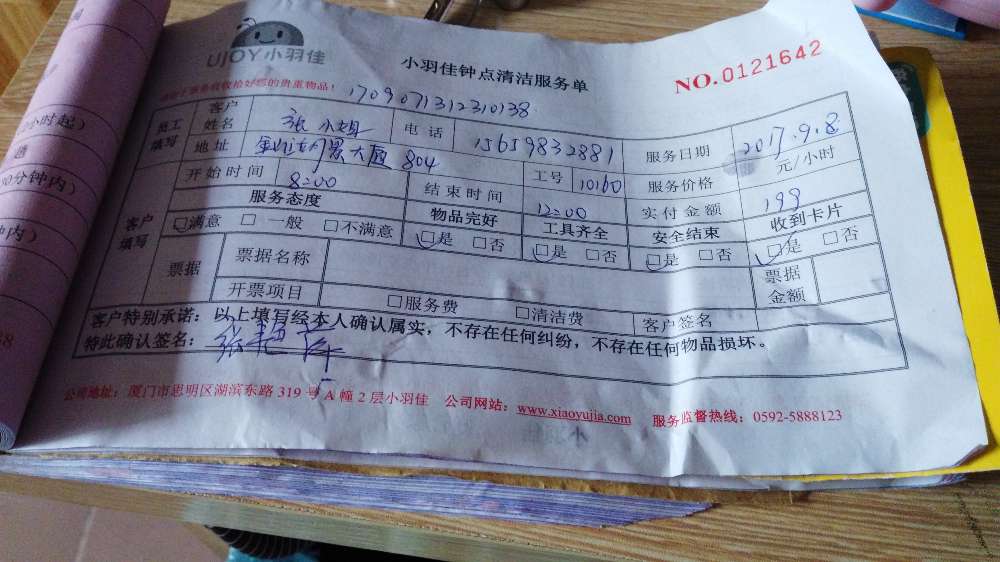 UJOY小羽佳
小羽佳钟点清洁服务单
NO.0121642
贵重物品!
1709071312310138
员工填写
客户姓名 张小姐 电话 15659832881 服务日期 2017.9.8
地址 大厦 804 工号 10160 服务价格 元/小时
开始时间 8:00 结束时间 12:00 实付金额 199
客户填写
服务态度 物品完好 工具齐全 安全结束 收到卡片
□满意 □一般 □不满意 □是 □否 □是 □否 □是 □否 □是 □否
票据 票据名称 票据金额
开票项目 □服务费 □清洁费 客户签名
客户特别承诺:以上填写经本人确认属实,不存在任何纠纷,不存在任何物品损坏。
特此确认签名:张艳
公司地址:厦门市思明区湖滨东路 319 号 A 幢 2 层小羽佳 公司网站:www.xiaoyujia.com 服务监督热线:0592-5888123
小时起)
分钟内)